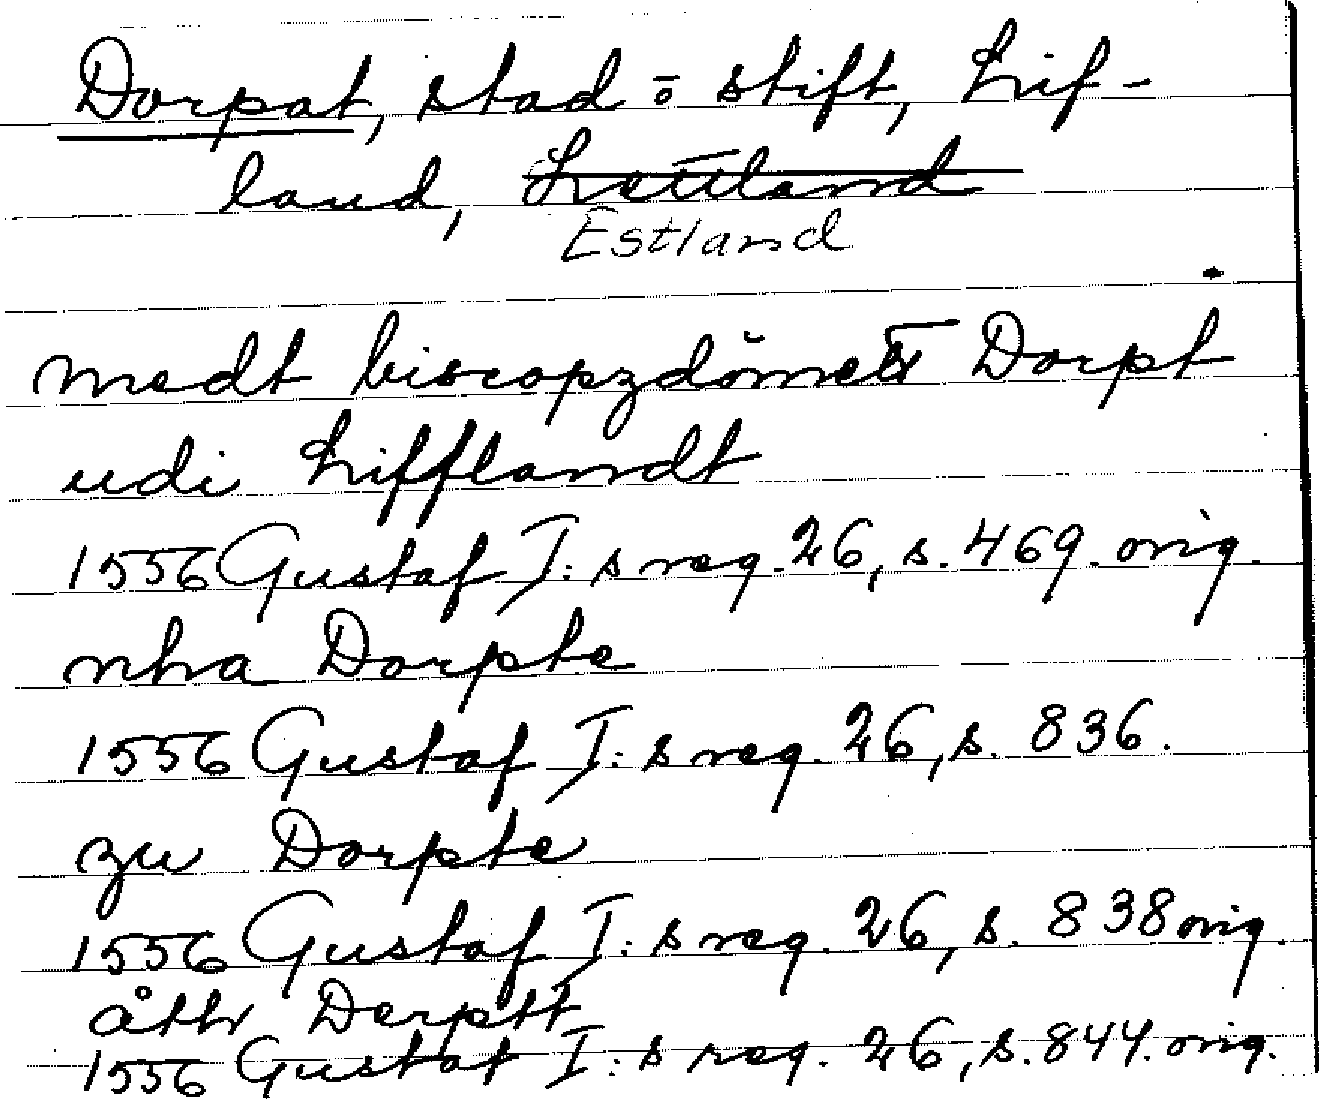 Dorpat, stad o stift, Lif-
land, Lettland
Estland
medt biscopzdömet Dorpt
udi Lifflandt
1556 Gustaf I:s reg. 26, s. 469. orig.
nha Dorpte
1556 Gustaf I:s reg. 26, s. 836.
zu Dorpte
1556 Gustaf I:s reg. 26, s. 838 orig.
åth Derptt
1556 Gustaf I:s reg. 26, s. 844. orig.